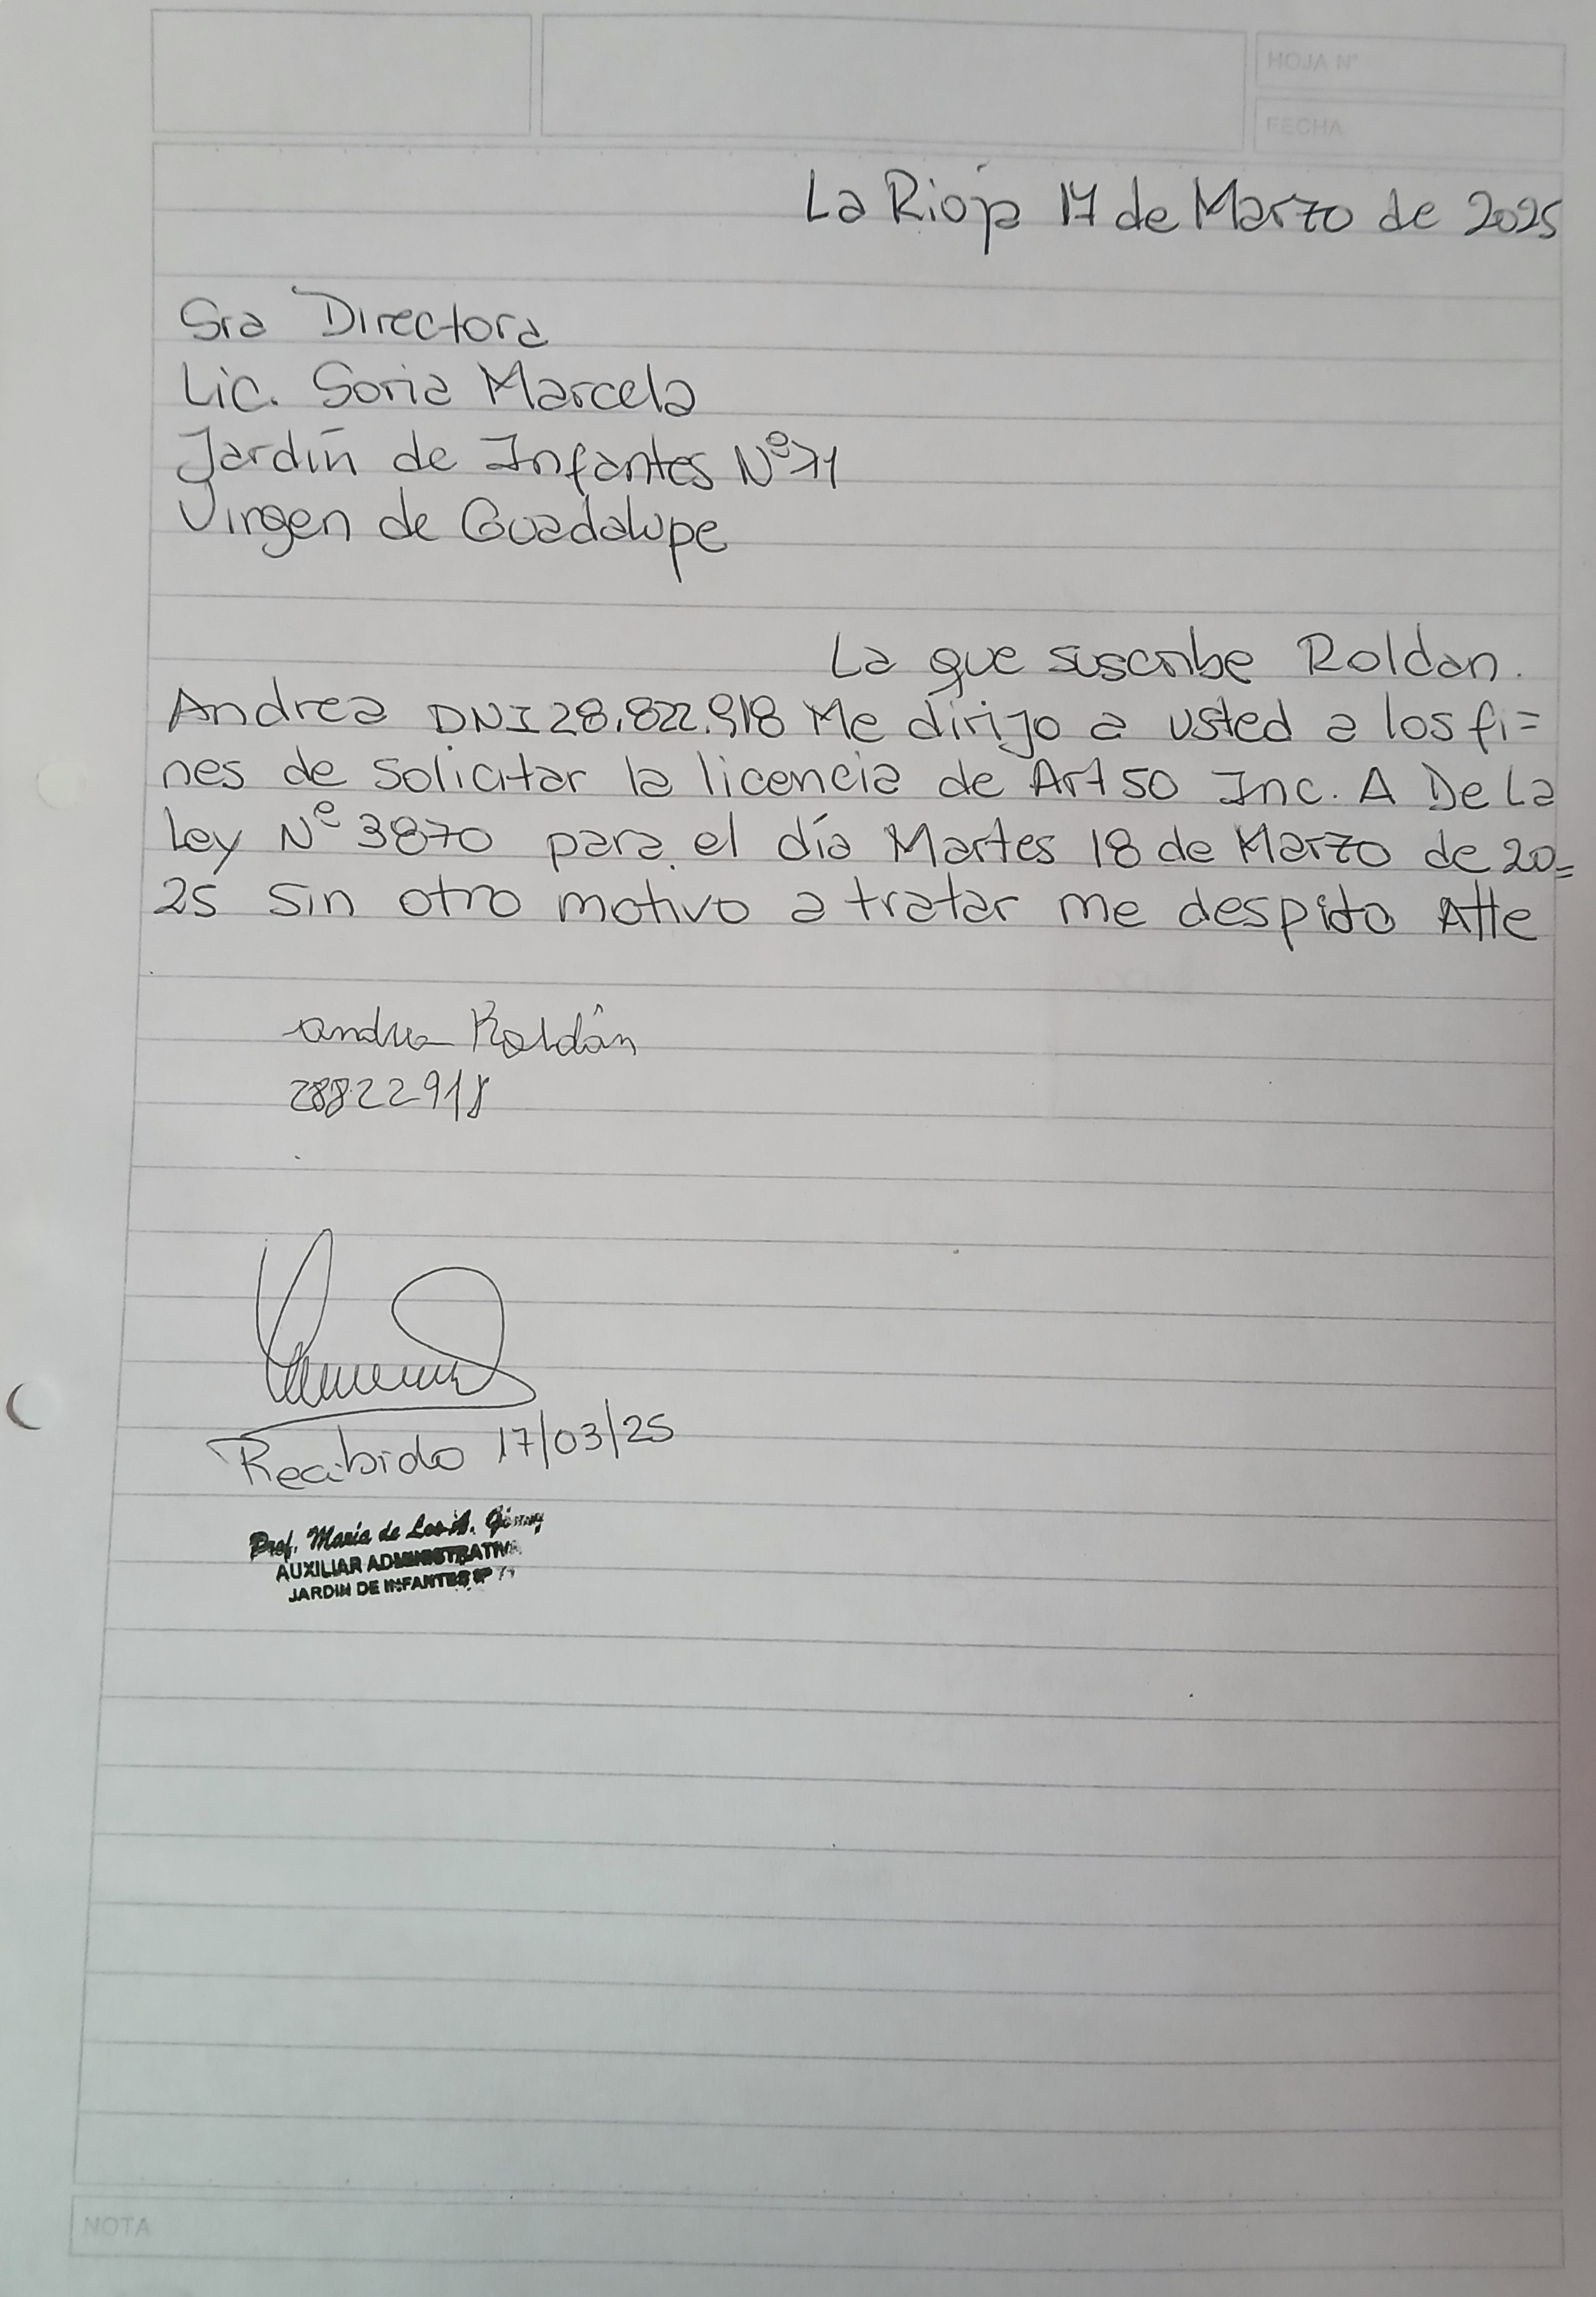 HOJA N°
FECHA
La Rioja 17 de Marzo de 2025
Sra Directora
Lic. Soria Marcela
Jardín de Infantes N°71
Virgen de Guadalupe
La que suscribe Roldan.
Andrea DNI 28.822.918 Me dirijo a usted a los fi=
nes de solicitar la licencia de Art 50 Inc. A De La
Ley N° 3870 para el día Martes 18 de Marzo de 20=
25 Sin otro motivo a tratar me despido Atte
Andrea Roldán
28822918
Recibido 17/03/25
Prof. María de Los A.
AUXILIAR ADMINISTRATIVA
JARDIN DE INFANTES Nº 71
NOTA